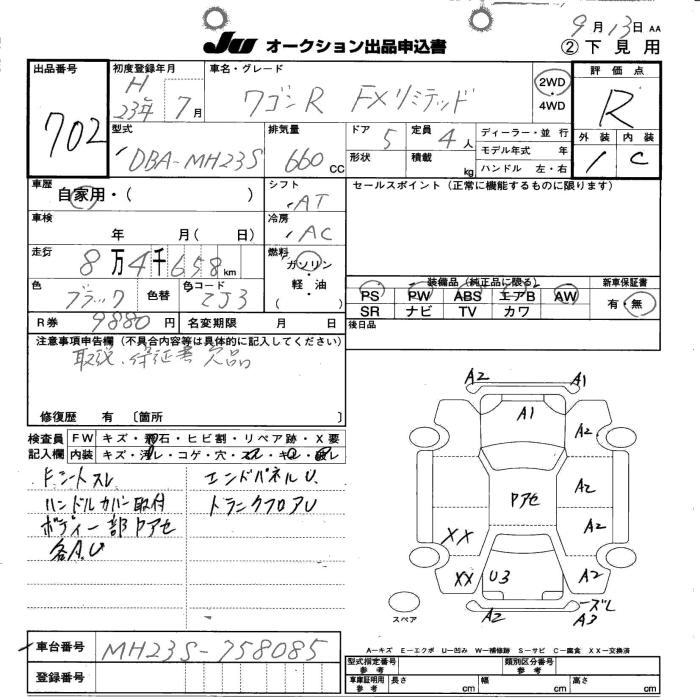 9月13日 AA
JU オークション出品申込書 ②下見用
出品番号 702
初度登録年月 H 23年 7月
車名・グレード ワゴンR FXリミテッド
2WD・4WD
評価点 R
外装 1 内装 C
型式 DBA-MH23S
排気量 660 cc
ドア 5 定員 4人
形状 積載 kg
ディーラー・並行
モデル年式 年
ハンドル 左・右
車歴 自家用・( )
シフト AT
セールスポイント(正常に機能するものに限ります)
車検 年 月( 日)
冷房 AC
走行 8万4千658km
燃料 ガソリン・軽・油 ( )
色 ブラック 色替 色コード ZJ3
装備品(純正品に限る) 新車保証書
PS PW ABS エアB AW 有・無
SR ナビ TV カワ
R券 9880円 名変期限 月 日
後日品
注意事項申告欄(不具合内容等は具体的に記入してください)
取説、保証書 欠品
修復歴 有 〔箇所 〕
検査員記入欄 FW キズ・飛石・ヒビ割・リペア跡・X要
内装 キズ・汚レ・コゲ・穴・スレ・キレ・破レ
ハンドルカバー取付
ボディー一部ワアセ
各A.U
エンドパネルU.
トランクフロアU
A2 A1
A1 A2
ワアセ A2
A2
XX
XX U3 A2
A2 ーズレ
A3
スペア
A-キズ E-エクボ U-凹み W-補修跡 S-サビ C-腐食 XX-交換済
車台番号 MH23S-758085
登録番号
型式指定番号 参考 類別区分番号 参考
車庫証明用 参考 長さ cm 幅 cm 高さ cm